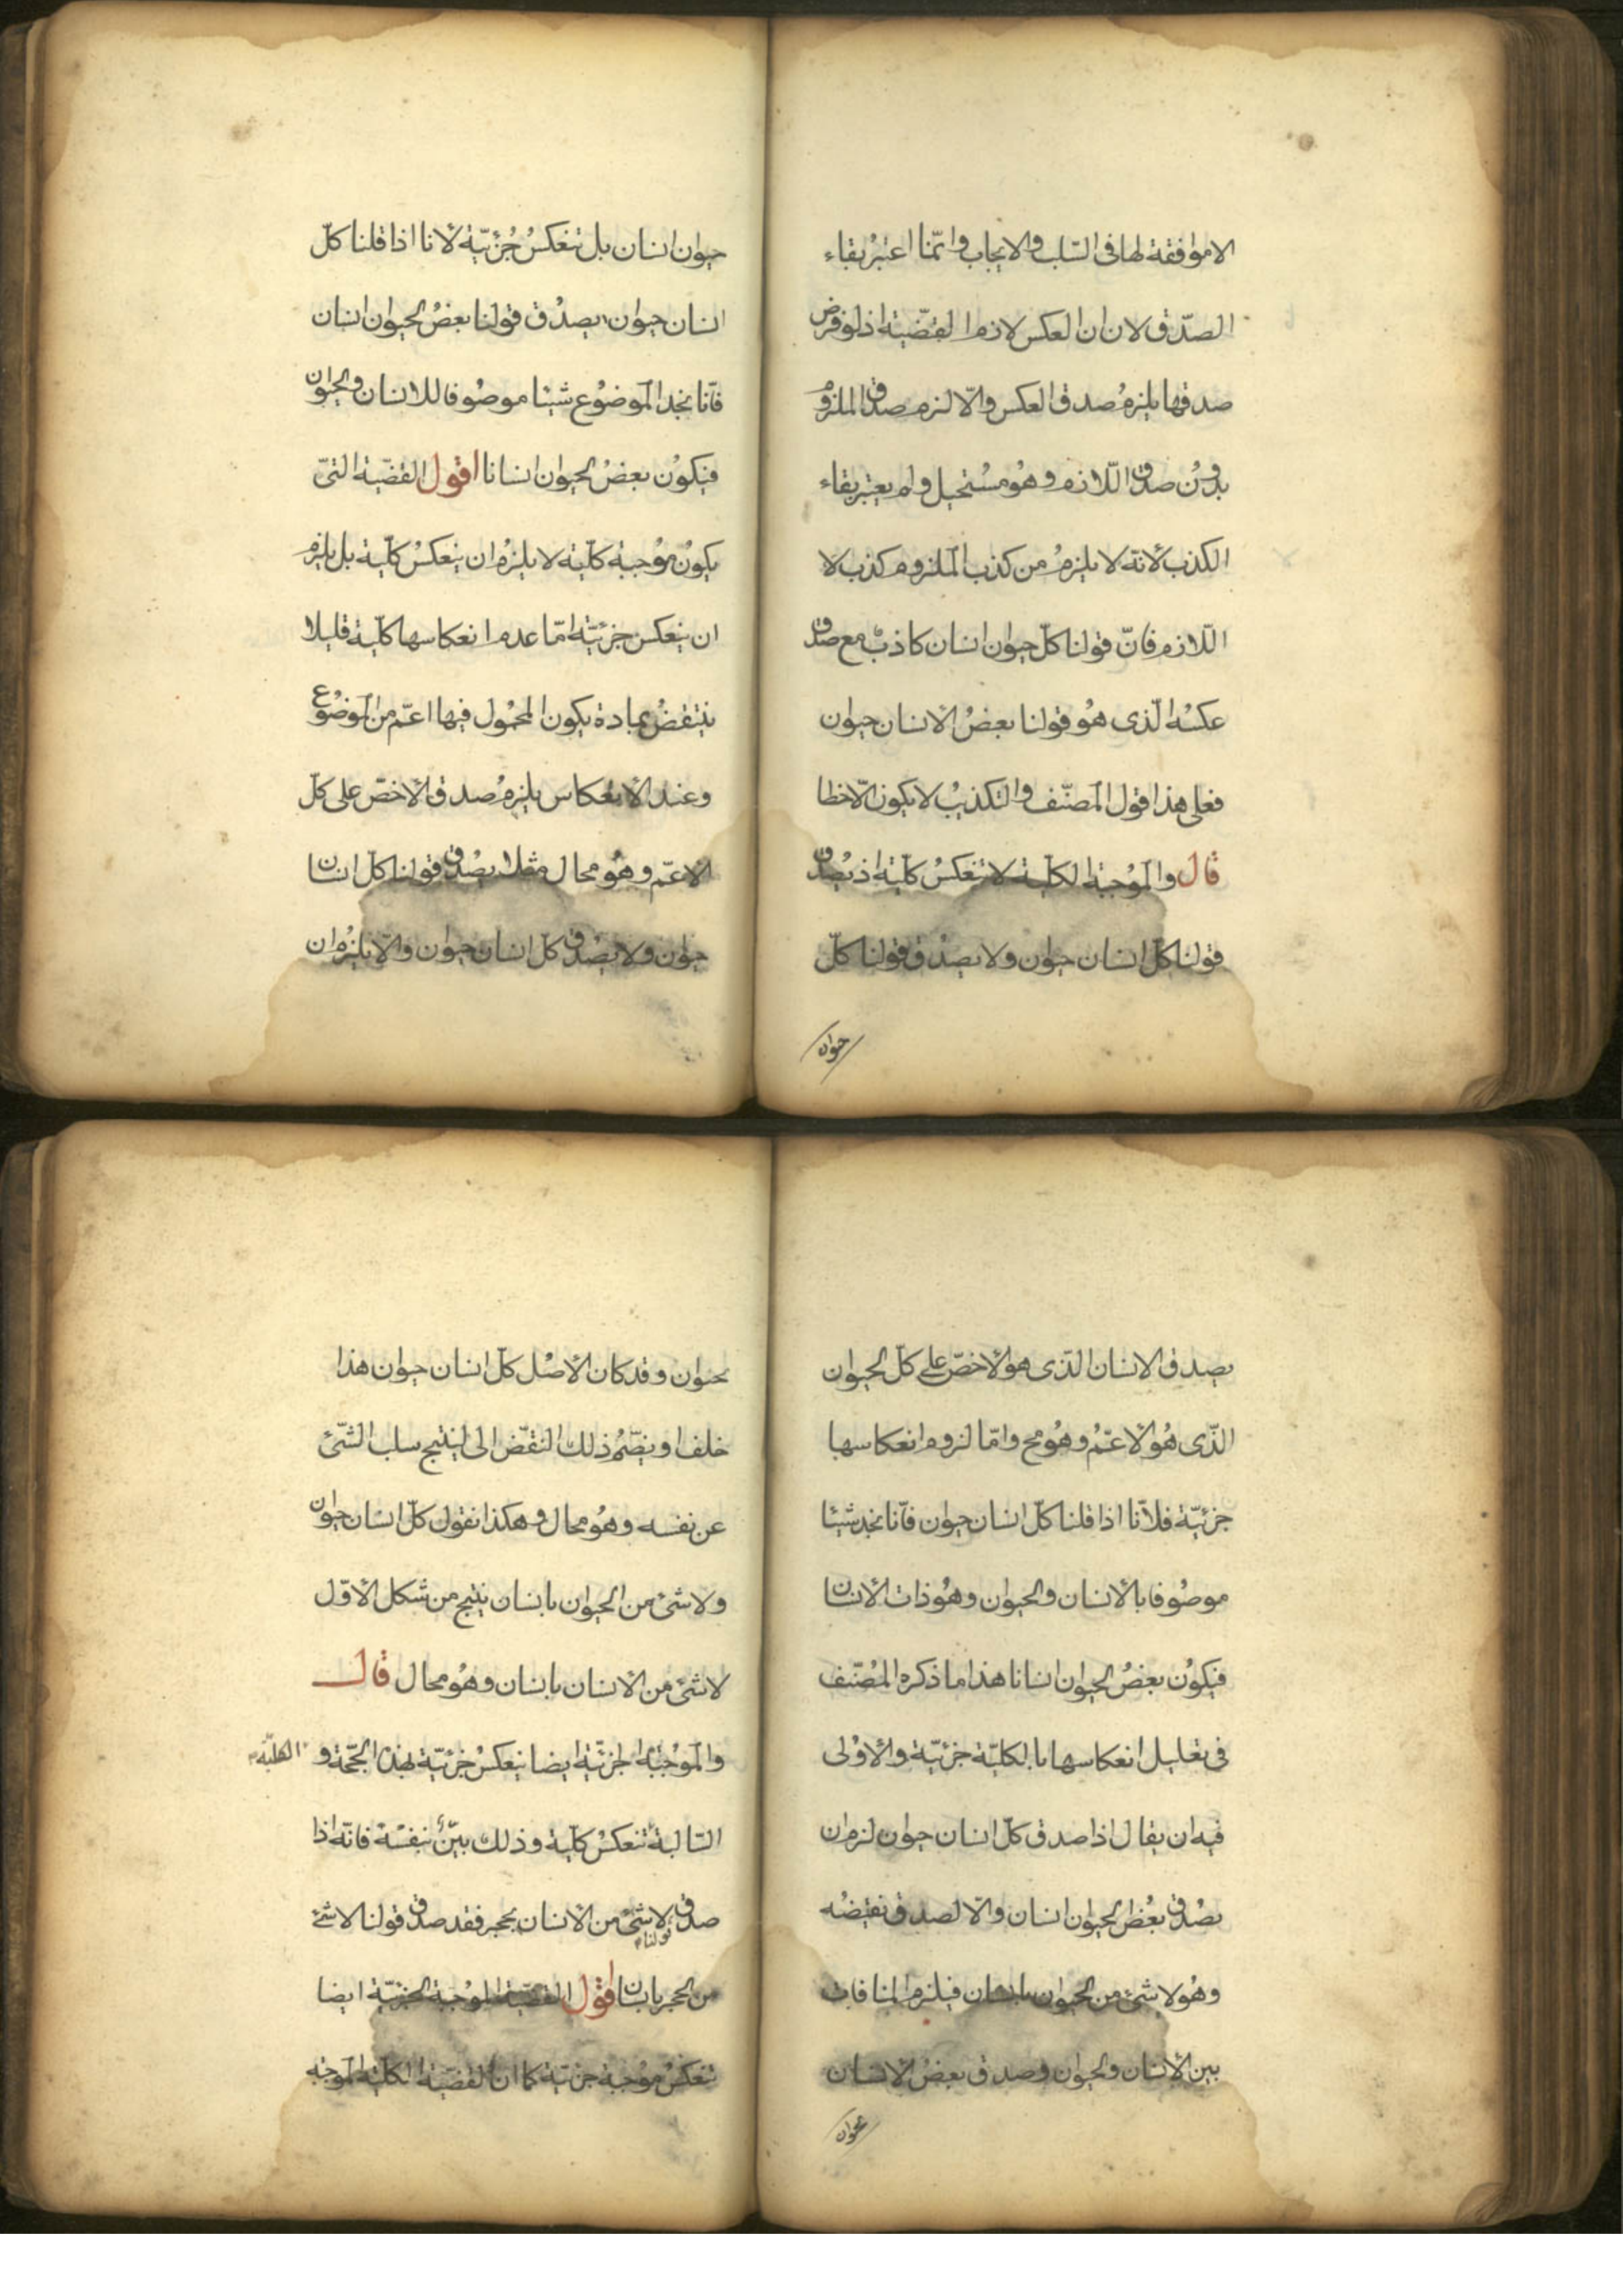 الا موافقة لها فى السّلب والايجاب وانّما اعتبرُ بقاء
الصّدق لان ان العكس لازم القضّية اذ لو فرض
صدقها يلزمُ صدق العكس والّا لزم صدق الملزوم
بدُون صدق اللّازم وهُو مسْتحيل ولم يعتبر بقاء
الكذب لأنّه لا يلزمُ من كذب الملزوم كذب لا
اللّازم فانّ قولنا كلّ حيوان انسان كاذبٌ مع صدق
عكسُه الّذى هُو قولنا بعضُ الانسان حيوان
فعلى هذا قول المصنّف والتكذيبْ لا يكون الّا خطا
قال والموُجبة الكليّة لا تنعكسُ كليّة اذ يصْدق
قولنا كلّ انسان حيوان ولا يصدْق قولنا كلّ
حيوان
حيوان انسان بل تنعكسُ جُزئيّة لأنا اذا قلنا كلّ
انسان حيوان يصدْق قولنا بعضُ الحيوان انسان
فأنّا نجد الموضوُع شيئا موصوُفا للانسان والحيوان
فيكوُن بعضُ الحيوان انسانا اقول القضيّة التىّ
يكوُن موُجبة كليّة لا يلزمُ ان ينعكسُ كليّة بل يلزم
ان ينعكس جزئيّة امّا عدم انعكاسها كليّة قليلا
ينتقضُ بمادة يكون المحمُول فيها اعمّ من الموضوُع
وعند الأنعكاس يلزمُ صدق الأخصّ على كلّ
الاعمّ وهُو محال مثلا يصْدق قولنا كلّ انسان
حيوان ولا يصْدق كلّ انسان حيوان والّا يلزمُ ان
يصدق الانسان الّذى هو الأخصّ على كلّ الحيوان
الّذى هُو الأعمُّ وهُو مح وامّا لزوم انعكاسها
جزئيّة فلأنّا اذا قلنا كلّ انسان حيوان فأنّا نجد شيئا
موصوُفا بالأنسان والحيوان وهُو ذات الأنسان
فيكوُن بعضُ الحيوان انسانا هذا ما ذكره المصُنّف
فى تعليل انعكاسها بالكليّة جزئيّة والاوْلى
فيه ان يقال اذا صدق كلّ انسان حيوان لزم ان
يصْدق بعْض الحيوان انسان والّا لصدق نقيضُه
وهُو لا شئ من الحيوان بانسان فيلزم المنافات
بين الأنسان والحيوان وصدق بعضُ الأنسان
بحيوان
بحيوان وقد كان الأصْل كلّ انسان حيوان هذا
خلف او يضّمُ ذلك النقّض الى لينتج سلب الشّئ
عن نفسه وهُو محال وهكذا نقول كلّ انسان حيوان
ولا شئ من الحيوان بانسان ينتج من شكل الأوّل
لا شئ من الأنسان بانسان وهُو محال قال
والموْجبة الجزئيّة ايضا ينعكسْ جزئيّة بهذا الحجّة و الكليّة
السّالبة تنعكسْ كليّة وذلك بيّنٌ بنفسْه فانّه اذا
صدق قولنا لا شئ من الأنسان بحجر فقد صدق قولنا لا شئ
من الحجر بانسان اقول القضيّة الموُجبة الجزئيّة ايضا
تنعكسُ موُجبة جزئيّة كما ان القضيّة الكليّة الموجبة